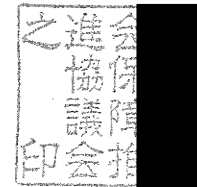 会保障推
進協議会
之印